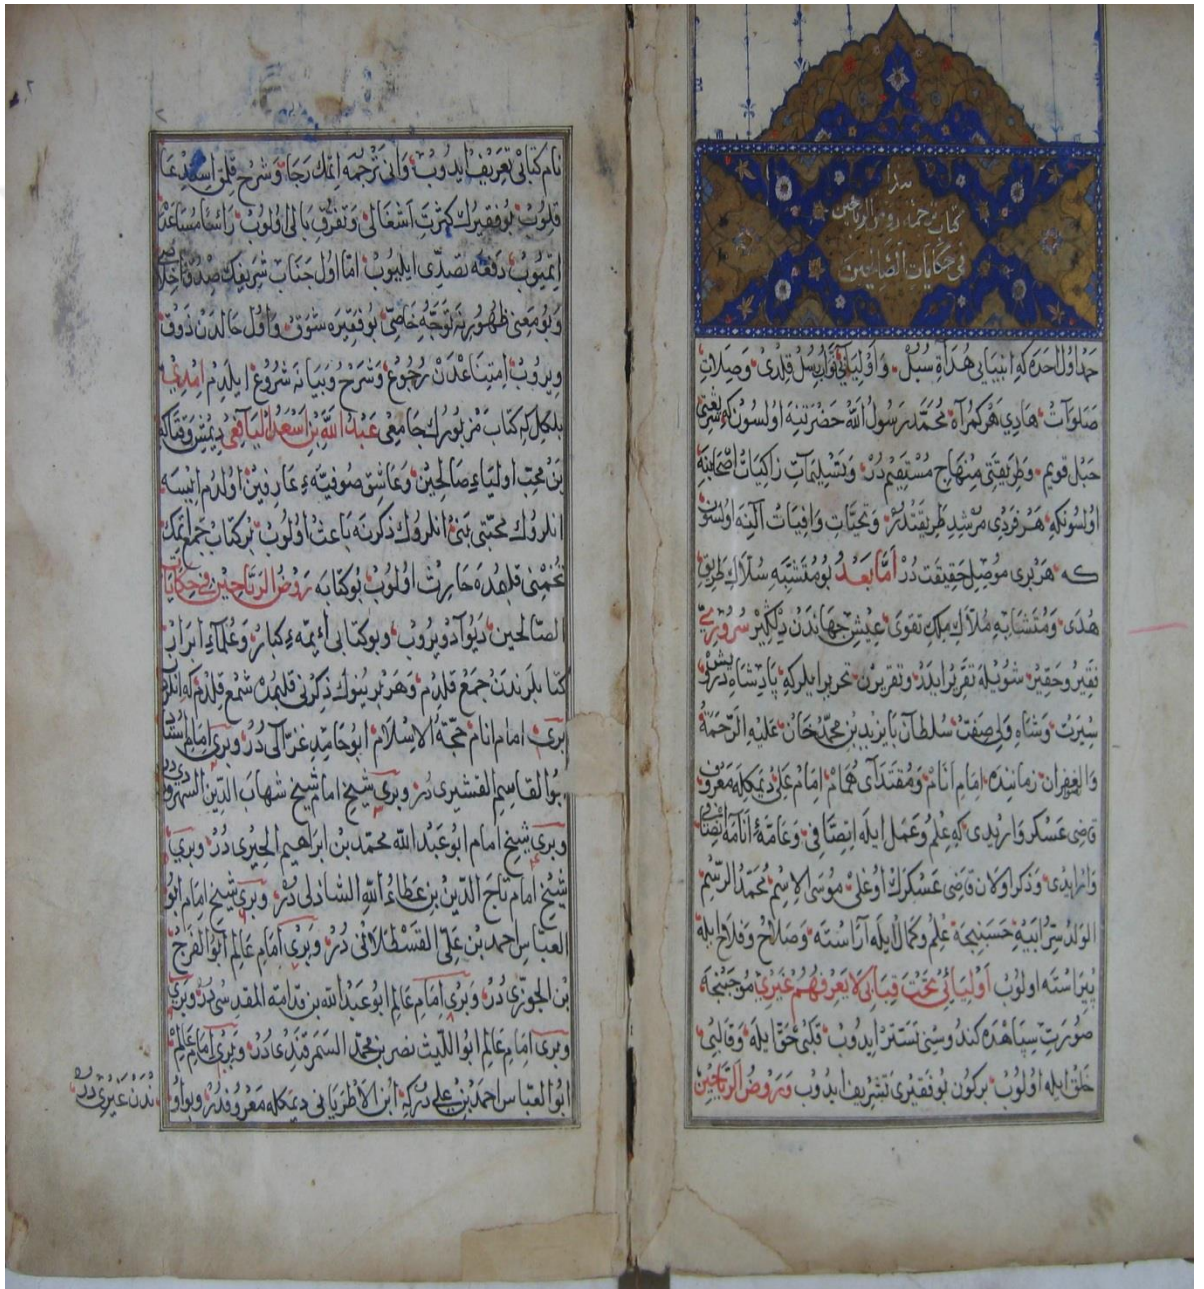 هذا
كتاب ترجمة روض الرياحين
في حكايات الصالحين
حمد اول احده كه انبيايی هداة سبل و اوليايی نواب رسل قلدی وصلات
صلوات هادی هر كمراه محمد رسول الله حضرتنه اولسون كه شريعتی
حبل قويم وطريقتی منهاج مستقيم در وتسليمات زاكيات اصحابنه
اولسونكه هر فردی مرشد طريقتدر وتحيات وافيات آلنه اولسون
كه هر بری موصل حقيقت در اما بعد بو متشبه سلاك طريق
هدی ومتشابه ملاك ملك تقوی عيش جهاندن دلكير سروری
فقير وحقير شويله تقرير ايلر وتقريرن تحرير ايلر كه پادشاه درويش
سيرت وشاه ولی صفت سلطان بايزيد بن محمد خان عليه الرحمة
والغفران زماننده امام انام ومقتدای همام امام علی ديمكله معروف
قاضی عسكر وار يدی كه علم وعمل ايله اتصافی وعامۀ انامه انصافی
وار ايدی وذكر اولان قاضی عسكرك اوغلی موسی الاسم محمد الرسم
الولد سر ابيه حسبنجه علم وكمال ايله آراسته وصلاح وفلاح ايله
پيراسته اولوب اوليائی تحت قبابی لا يعرفهم غيری موجبنجه
صورت سپاهده كندوسنی تستر ايدوب قلبی حق ايله وقالبی
خلق ايله اولوب بر كون بو فقيری تشريف ايدوب وروض الرياحين
نام كتابی تعريف ايدوب وانی ترجمه ايتمك رجا وشرح قلمق استدعا
قلوب بو فقيرك كثرت اشغالی وتفرق بالی اولوب رائسا مساعده
ايتميوب دفعه تصدی ايليوب اما اول جناب شريفك صدق واخلاصی
وبو معنی ظهورينه توجه خاصی بو فقيره شوق واول حالدن ذوق
ويروب امتناعدن رجوع وشرح وبيانه شروع ايلدم امدی
بلكل كه كتاب مزبورك جامعی عبد الله بن اسعد اليافعی ديمش وقتاكه
بن محب اولياء صالحين وعاشق صوفيه ء عارفين اولدم ايسه
انلروك محبتی بنی انلروك ذكرنه باعث اولوب بر كتاب جمع ايتمك
تخمنی قلبمده حارث اولوب بو كتابه روض الرياحين في حكايات
الصالحين ديو آد ويروب وبو كتابی ائمه ء كبار وعلماء ابرار
كتابلرندن جمع قلدم وهر برينوك ذكرنی قلبمده شمع قلدم كه انلرك
بری امام انام حجة الاسلام ابو حامد غزالی در وبری امام استاد
ابو القاسم القشيری در وبری شيخ امام شيخ شهاب الدين السهروردی در
وبری شيخ امام ابو عبد الله محمد بن ابراهيم الخيری در وبری
شيخ امام تاج الدين بن عطاء الله الشاذلی در وبری شيخ امام ابو
العباس احمد بن علی القسطلانی در وبری امام عالم ابو الفرج
بن الجوزی در وبری امام عالم ابو عبد الله بن قدامة المقدسی در وبری
وبری امام عالم ابو الليث نصر بن محمد السمرقندی در وبری امام عالم
ابو العباس احمد بن علی در كه ابن الاطريانی ديمكله معروفدر وبو اون
ندن غيری در